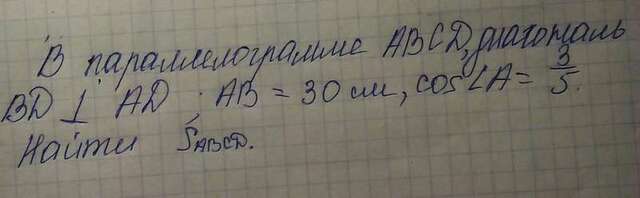 В параллелограмме ABCD, диагональ
BD ⊥ AD. AB = 30 см, cos∠A = 3/5.
Найти S_ABCD.